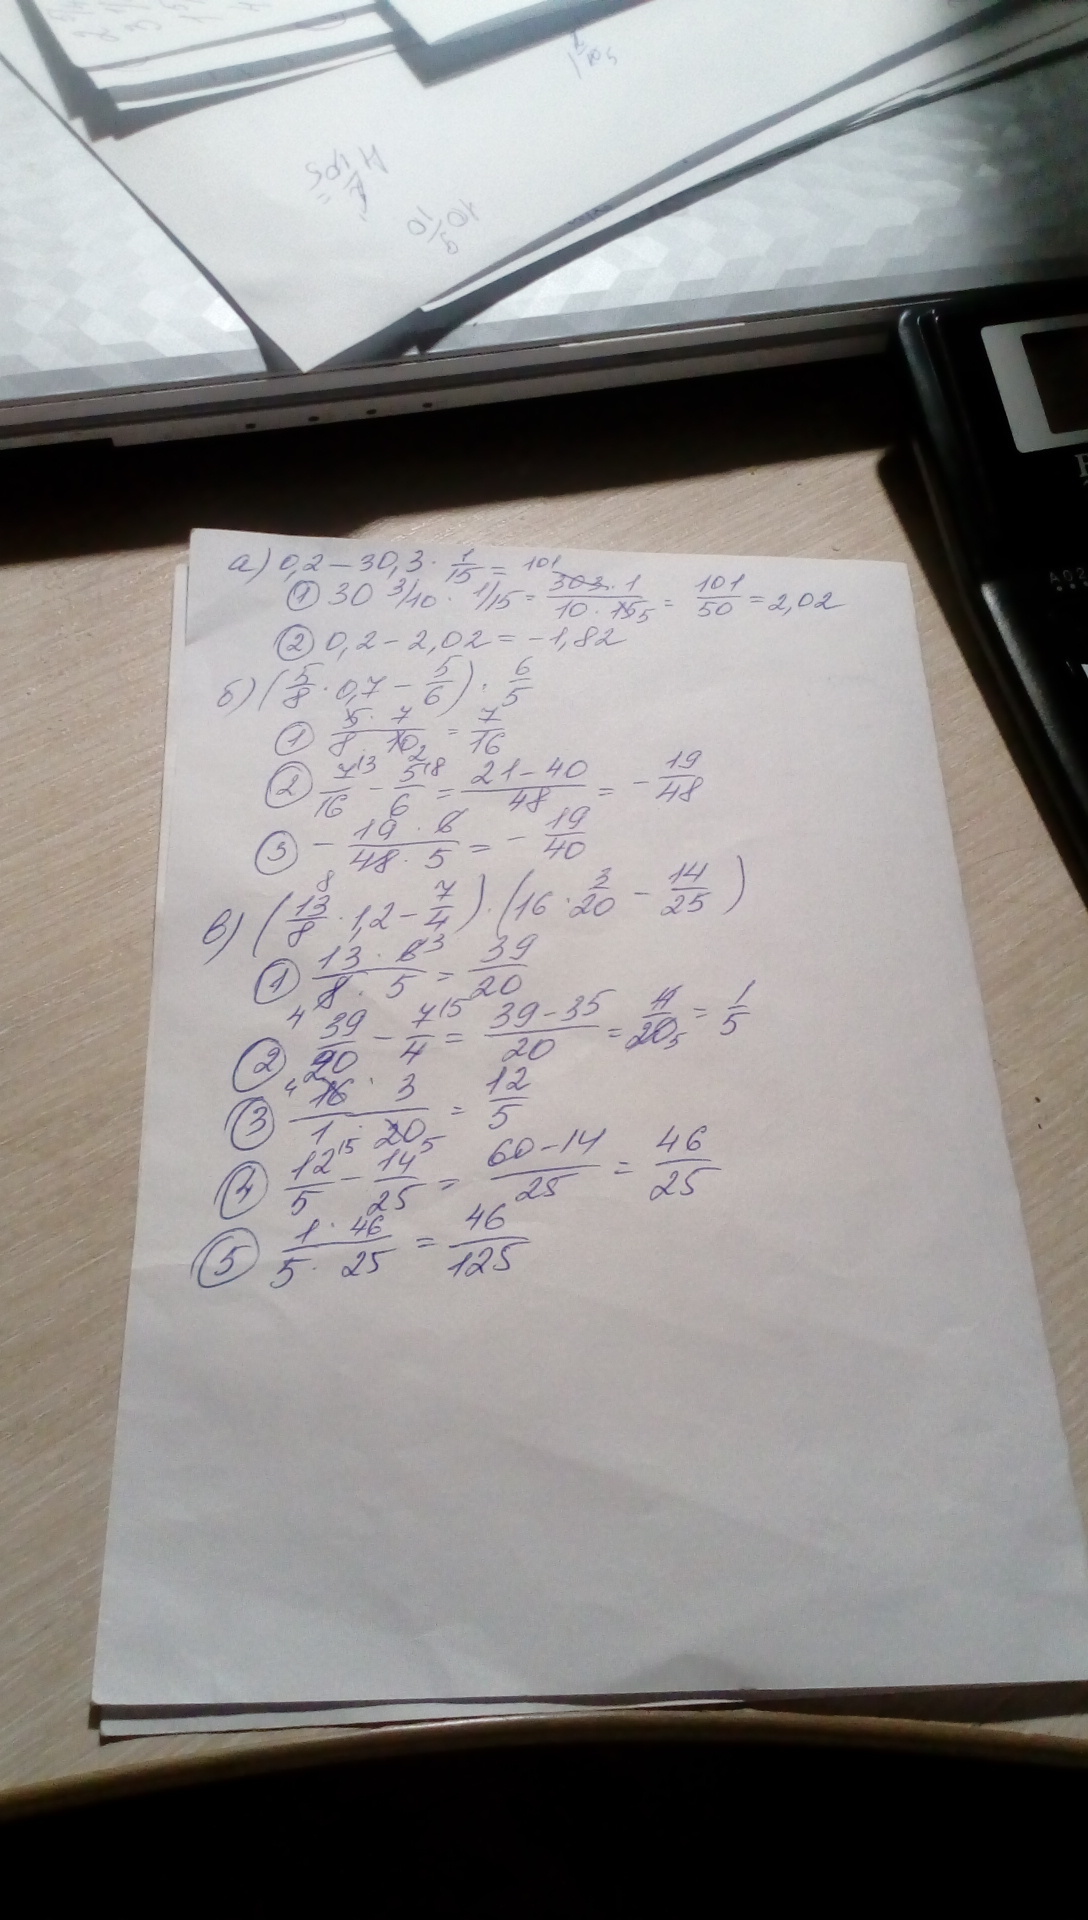 а) 0,2 − 30,3 · 1/15 =
① 30 3/10 · 1/15 = 303 · 1 / 10 · 15 = 101/50 = 2,02
② 0,2 − 2,02 = −1,82
б) (5/8 · 0,7 − 5/6) · 6/5
① 5 · 7 / 8 · 10 = 7/16
② 7/16 − 5/6 = 21−40 / 48 = − 19/48
③ − 19 · 6 / 48 · 5 = − 19/40
в) (13/8 · 1,2 − 7/4) · (16 · 3/20 − 14/25)
① 13 · 6 / 8 · 5 = 39/20
② 39/20 − 7/4 = 39−35 / 20 = 4/20 = 1/5
③ 16 · 3 / 1 · 20 = 12/5
④ 12/5 − 14/25 = 60−14 / 25 = 46/25
⑤ 1 · 46 / 5 · 25 = 46/125